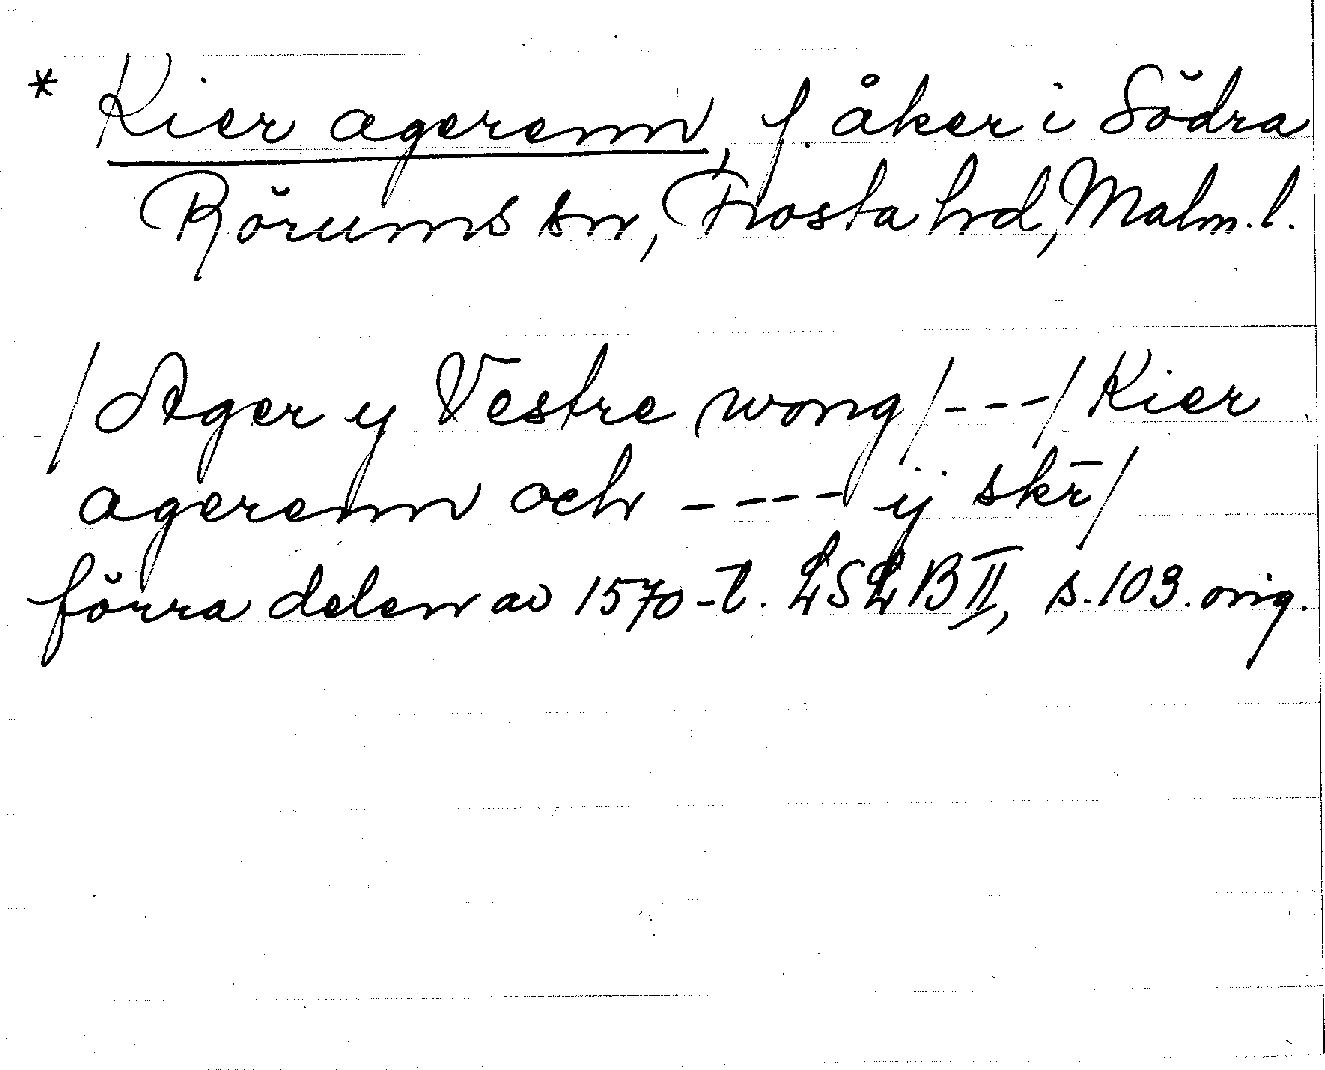 * Kier agerenn, f. åker i Södra
Rörums sn, Frosta hd, Malm. l.
/Ager y Vestre wong/---/Kier
agerenn och ---- ij skr̄/
förra delen av 1570-t. LSLB II, s. 103. orig.